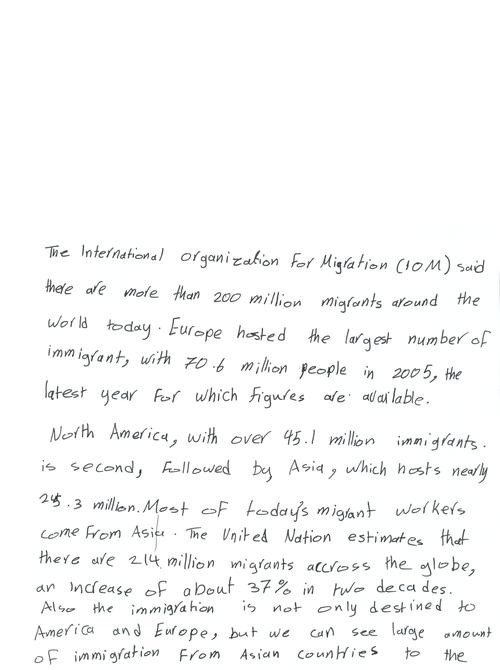 The International organization For Migration (IOM) said
there are more than 200 million migrants around the
world today. Europe hosted the largest number of
immigrant, with 70.6 million people in 2005, the
latest year for which figures are available.
North America, with over 45.1 million immigrants.
is second, followed by Asia, which hosts nearly
25.3 million. Most of today's migrant workers
come from Asia. The United Nation estimates that
there are 214 million migrants accross the globe,
an increase of about 37% in two decades.
Also the immigration is not only destined to
America and Europe, but we can see large amount
of immigration from Asian countries to the